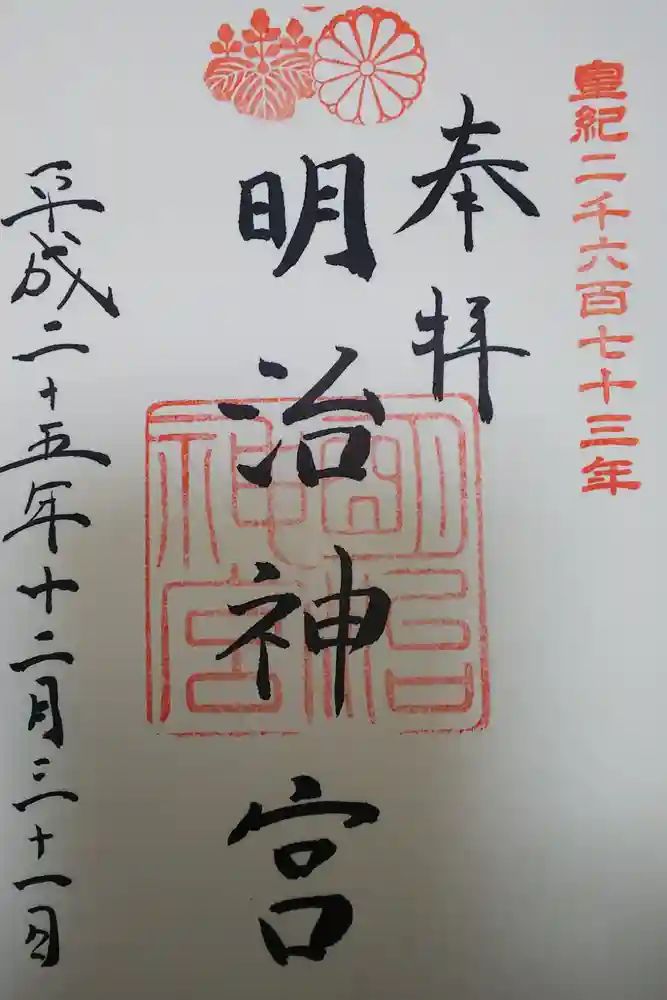 皇紀二千六百七十三年
奉拝
明治神宮
明治神宮
平成二十五年十二月三十一日